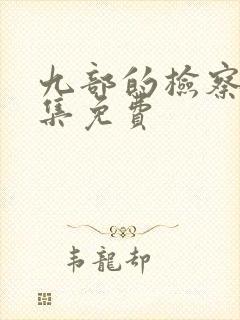 九部的檢察
集免費
韦龍却